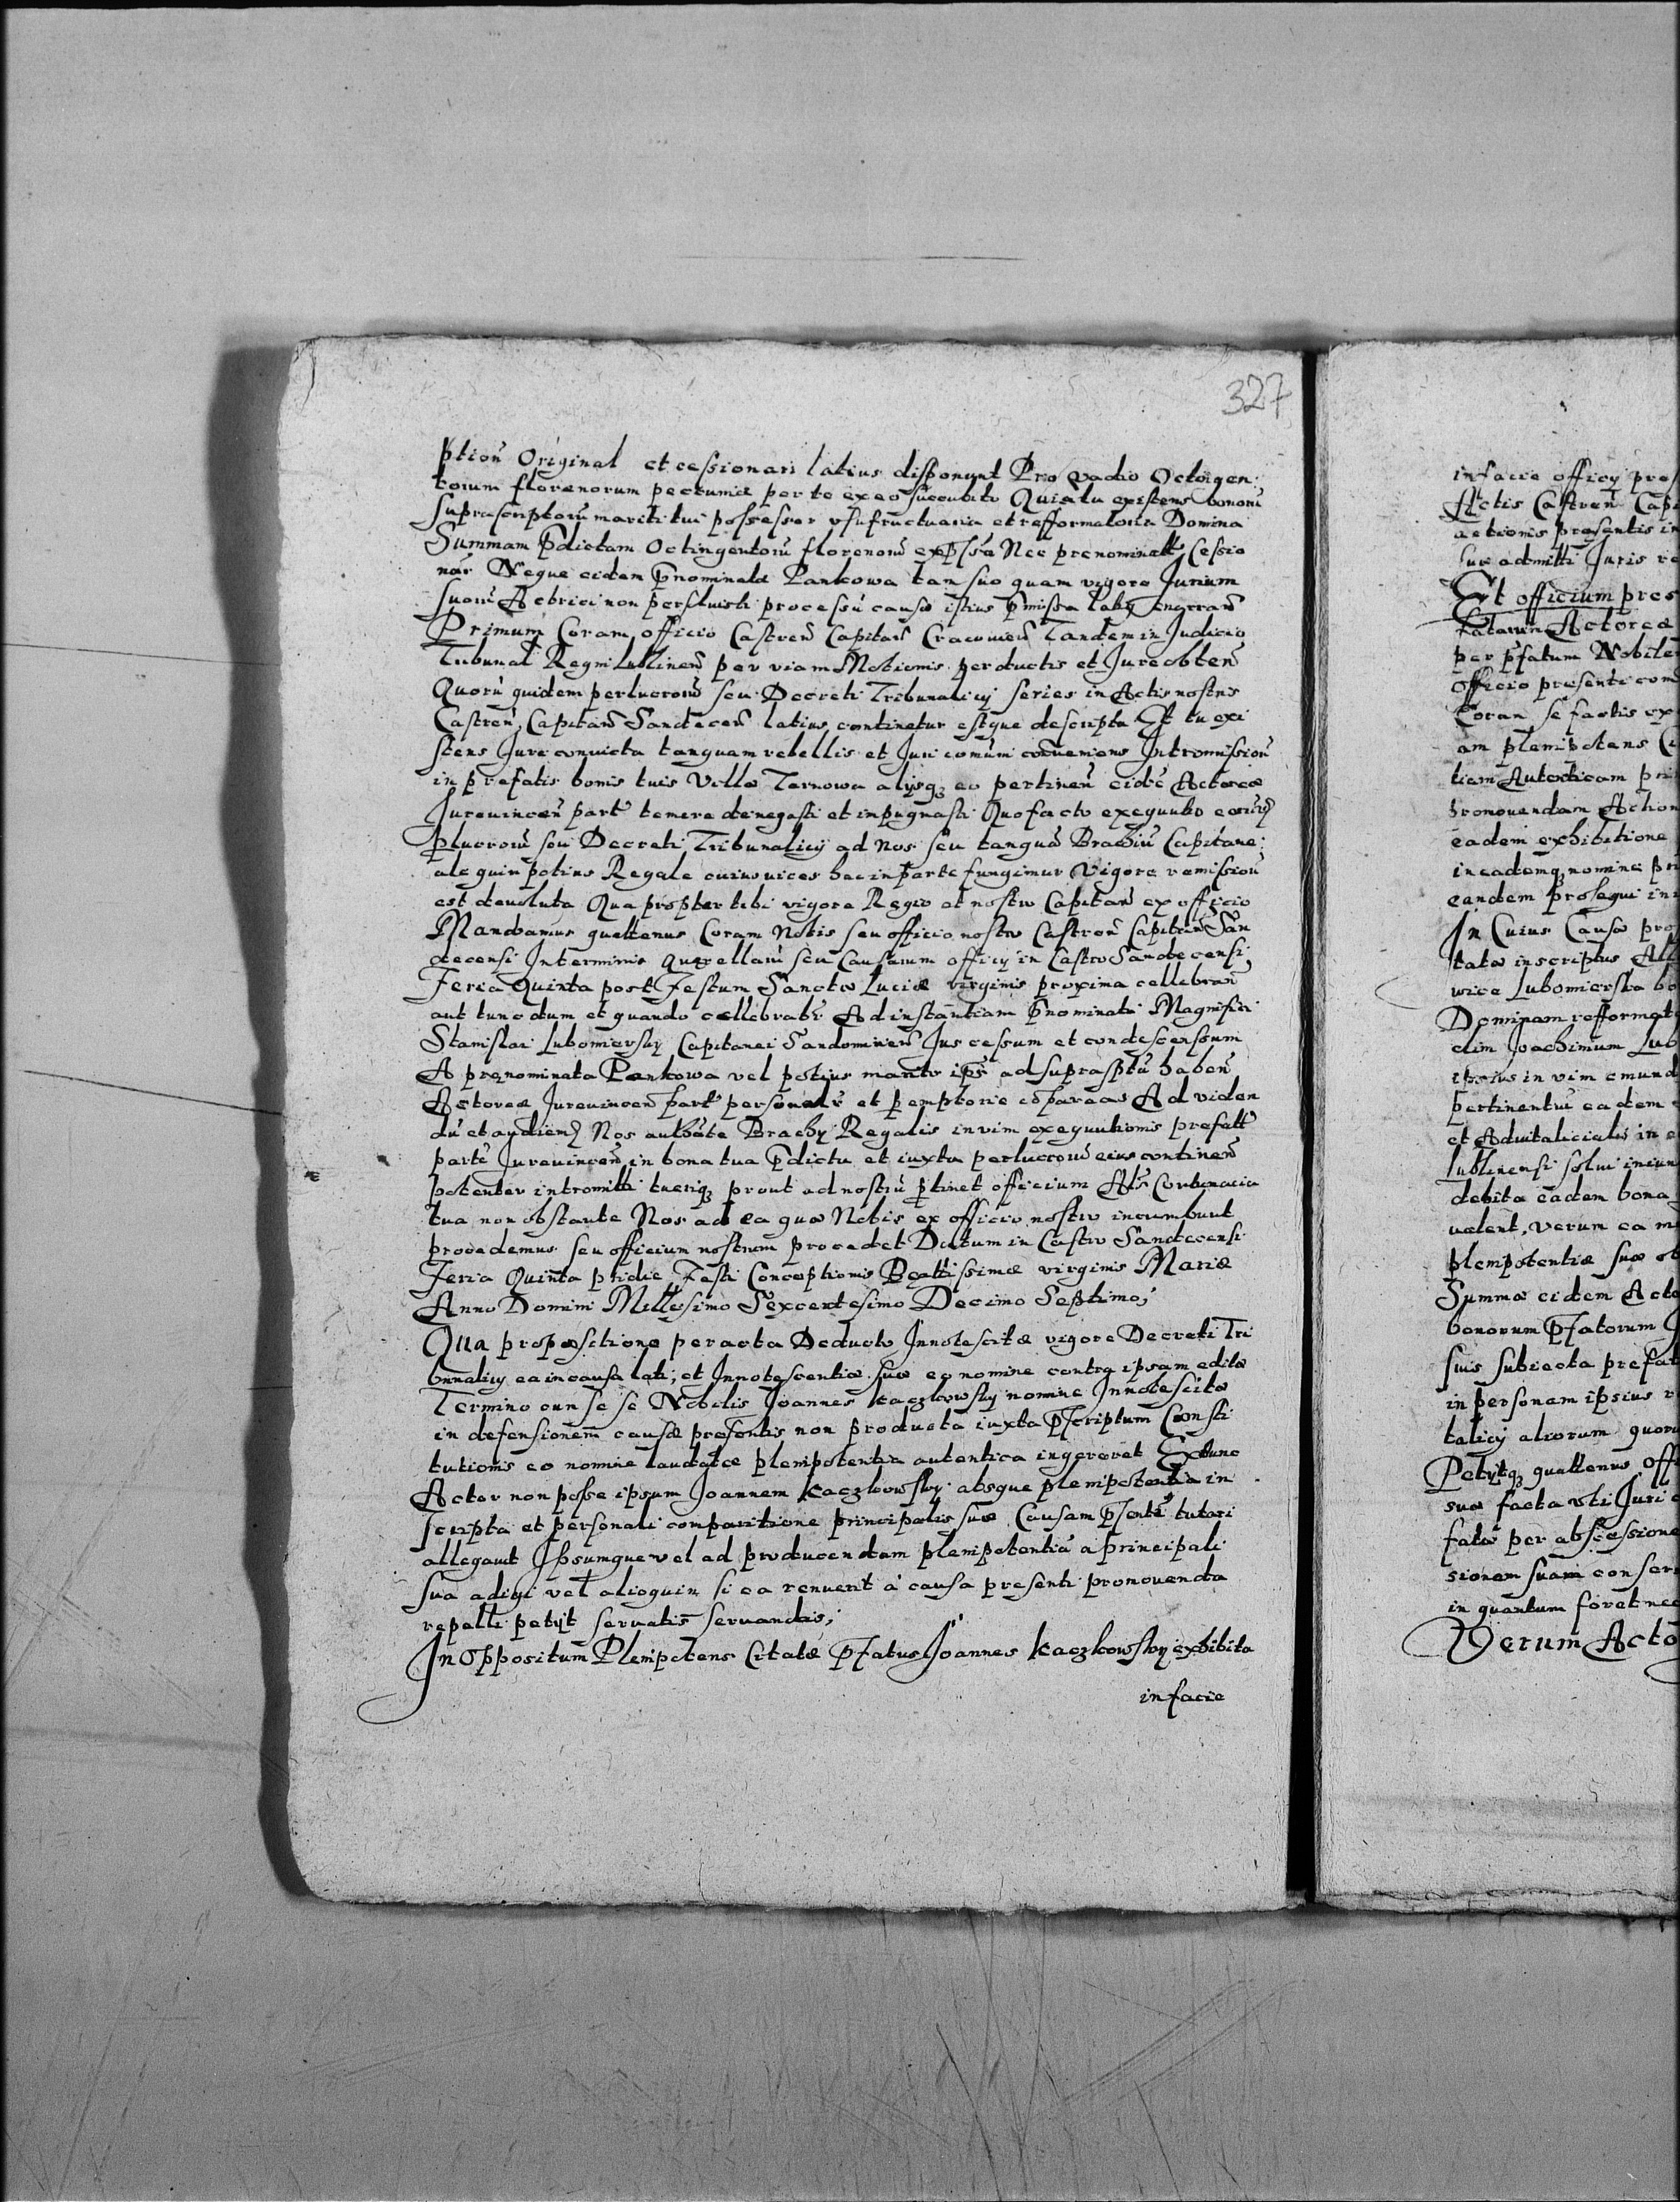 327
ptioñ Original et cessionari latius disponunt Pro vadio Octoigen:
torum florenorum pecuniæ per te ex eo succubito Quia tu existens bonorũ
suprascriptorũ mariti tui possessor usufructuaria et refformatoria Domina
Summam p̃dictam Octingentorũ florenorũ Nec prenominatt Cessio
nar Neque eidem p̃nominatæ Pankowa tan suo quam vigore Jurium
suorũ Actrici non persoluisti processũ causæ istius p̃missa
Primum Coram officio Castreñ Capitañ Cracovieñ Tandem in Judicio
Tribunal Regni Lublineñ per viam Motionis perductis et Jure obteñ
Quorũ quidem perlucrorũ seu Decreti Tribunalicij series in Actis nostris
Castreñ Capitañ Sandeceñ latius continetur estque descripta Et tu exi
stens Jure convicta tanquam rebellis et Juri comũni Intromissioñ
in prefatis bonis tuis Villæ Tarnowa alijsq₃ eo pertineñ eidẽ Actoreæ
Jurevinceñ partj temere denegasti et inpugnasti Quo facto exequutio
plucrorũ seu Decreti Tribunalicij ad Nos seu tanquã Brachiũ Capitane:
ale quin potius Regale cuius vices hac in parte fungimur Vigore remissioñ
est devoluta Qua propter tibi vigore Regio et nostro Capitañ ex officio
Mandamus quattenus Coram Nobis seu officio nostro Castreñ Capitañ San
decensi In terminis querellarũ seu Causarum officij in Castro Sandecensi
Feria Quinta post Festum Sanctæ Luciæ virginis proxima cellebrañ
aut tunc dum et quando cellebrabr̃ Ad instantiam p̃nominati Magnifici
Stanislai Lubomiersky Capitanei Sandomireñ Jus cessum et condescensum
A prenominata Pankowa vel potius marito ips̃ ad suprasptũ habeñ
Actoreæ Jurevinceñ partj personalr̃ et peremptorie cõpareas Ad viden
dũ et audienð Nos authõte Brachij Regalis in vim exequutionis prefatt
partẽ Jurevinceñ in bona tua p̃dicta et iuxta perlucrorũ eius contineñ
potenter intromitti tueriq₃ prout ad nostrũ ptinet officium Alr̃ Contumacia
tua non obstante Nos ad ea quæ Nobis ex officio nostro incumbunt
procedemus seu officium nostrum procedet Datum in Castro Sandecensi
Feria Quinta pridie Festi Conceptionis Beattissimæ virginis Mariæ
Anno Domini Millesimo Sexcentesimo Decimo Septimo;
Qua propositione peracta Deducto Innotescitæ vigore Decreti Tri
bunalicij ea in causa lati; et Innotescentiæ suæ eo nomine contra ipsam editæ
Termino cun se se Nobilis Joannes Kaczkowsky nomine Innotescitæ
in defensionem causæ presentis non producta iuxta p̃scriptum Consti
tutionis eo nomine laudatæ plenipotentia autentica ingereret Extunc
Actor non posse ipsum Joannem Kaczkowsky absque plenipotentia in
scripta et personali comparitione principalis suæ Causam p̃sentẽ tutari
allegavit Ipsumque vel ad producendam plenipotentiã a principali
sua adigi vel alioquin si ea renuerit à causa presenti promovenda
repelli petijt servatis servandis;
In Oppositum Plenipotens Citatæ p̃fatus Joannes Kaczkowsky exhibita
in facie
in facie officij
Actis Castreñ
actionis presentis in
suæ admitti Juris
Et officium
Actoreæ
per p̃fatum
officio presenti
Coram se factis
am plenipotens
tiam Autenticam
promovendam
eadem exhibitione
in eademq₃ nomine
eandem prosequi
In Cuius Causæ
tatæ inscriptus
Lubomierska
Dominam
olim Joachimum
ipsius in vim
pertinentiũ eadem
et Advitalicialis in
Lublinensi solvi
debita eadem bona
valent, verum ea
plenipotentiæ suæ
Summæ eidem
bonorum p̃fatorum
suis subiecta
in personam ipsius
talicij aliorum
Petijtq₃ quattenus
suæ facta uti Juri
fatã per abscessione
sionem suam
in quantum foret
Verum